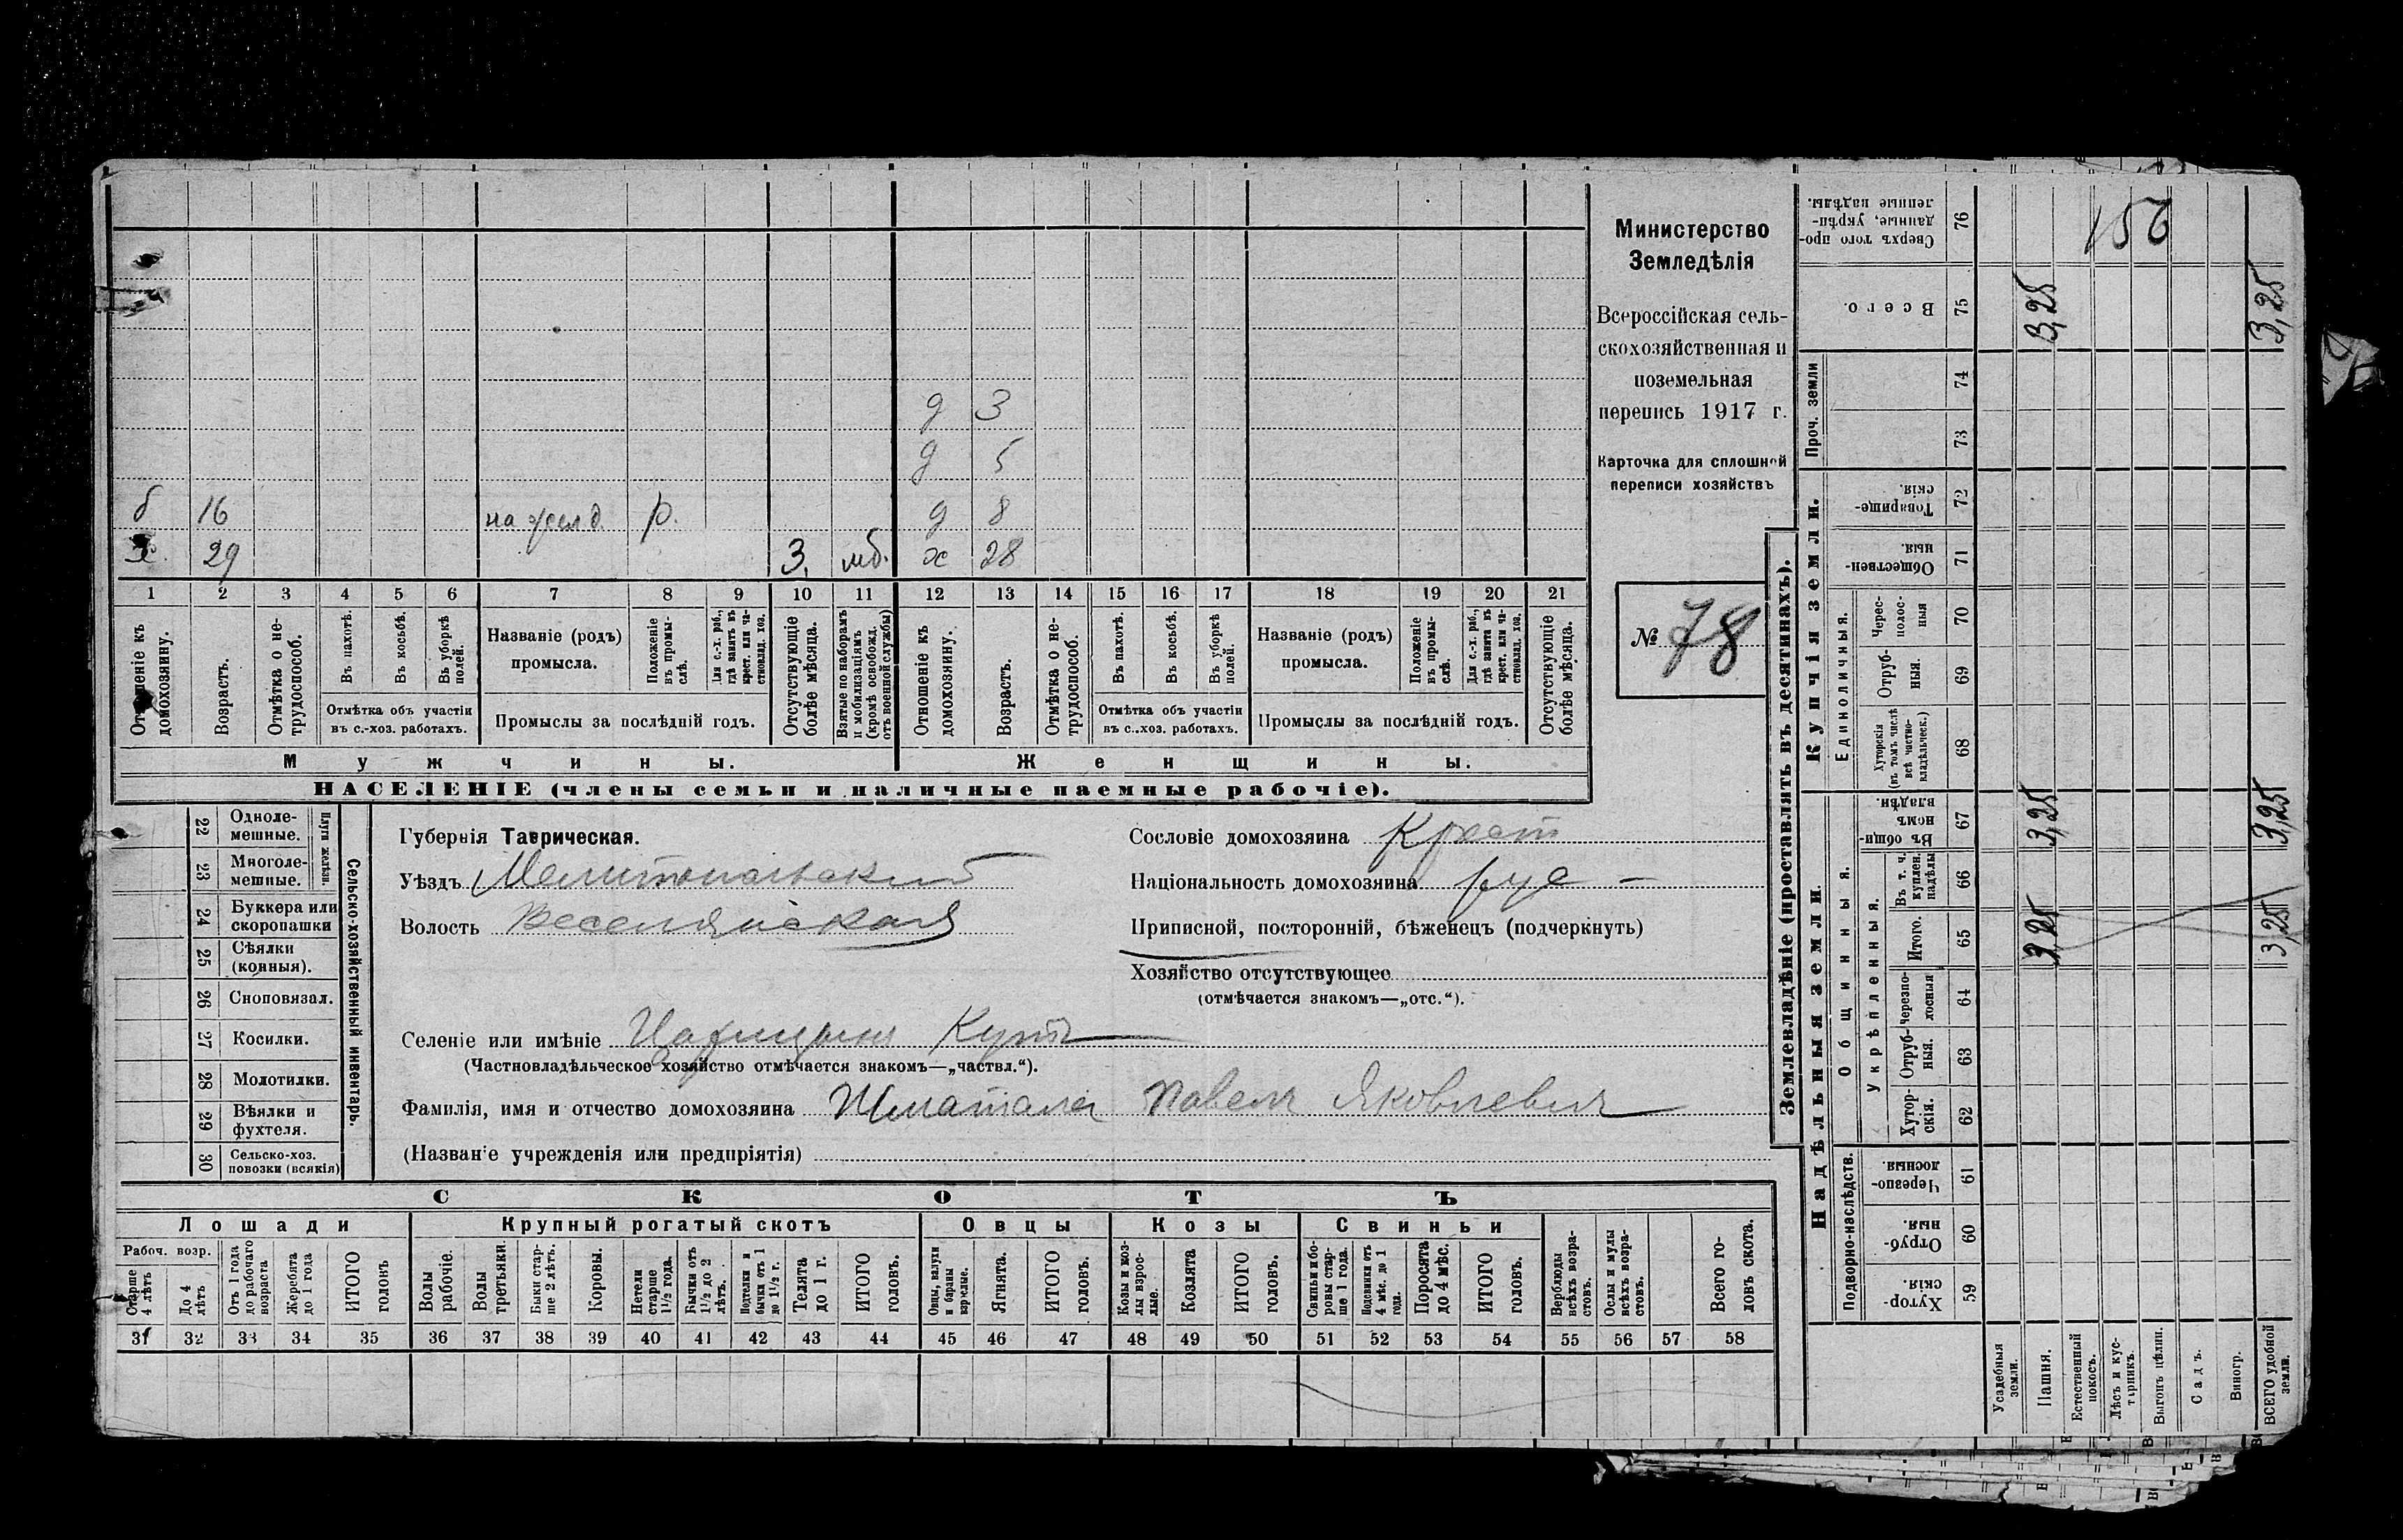 Министерство
Земледѣлія
Всероссійская сель-
скохозяйственная и
поземельная
перепись 1917 г.
Карточка для сплошной
переписи хозяйствъ
№ 78
д 3
д 5
б 16 р. д 8
х. 29 3. мб. х 28
1 2 3 4 5 6 7 8 9 10 11 12 13 14 15 16 17 18 19 20 21
Отношеніе къ домохозяину.
Возрастъ.
Отмѣтка о не-трудоспособ.
Въ пахотѣ.
Въ косьбѣ.
Въ уборкѣ полей.
Отмѣтка объ участіи
въ с.-хоз. работахъ.
Названіе (родъ)
промысла.
Положеніе въ промы-слѣ.
Для с.-х. раб., гдѣ занятъ въ крест. или ча-стновлад. хоз.
Промыслы за послѣдній годъ.
Отсутствующіе болѣе мѣсяца.
Взятые по наборамъ и мобилизаціямъ (кромѣ освобожд. отъ военной службы)
Отношеніе къ домохозяину.
Возрастъ.
Отмѣтка о не-трудоспособ.
Въ пахотѣ.
Въ косьбѣ.
Въ уборкѣ полей.
Отмѣтка объ участіи
въ с.-хоз. работахъ.
Названіе (родъ)
промысла.
Положеніе въ промы-слѣ.
Для с.-х. раб., гдѣ занята въ крест. или ча-стновлад. хоз.
Промыслы за послѣдній годъ.
Отсутствующіе болѣе мѣсяца.
Мужчины. Женщины.
НАСЕЛЕНІЕ (члены семьи и наличные наемные рабочіе).
22 Одноле-мешные.
23 Многоле-мешные.
Плуги желѣзн.
24 Буккера или скоропашки
25 Сѣялки (конныя).
26 Сноповязал.
27 Косилки.
28 Молотилки.
29 Вѣялки и фухтеля.
30 Сельско-хоз. повозки (всякія)
Сельско-хозяйственный инвентарь.
Губернія Таврическая.
Уѣздъ Мелитопольский
Волость Веселянская
Сословіе домохозяина Крест
Національность домохозяина рус –
Приписной, посторонній, бѣженецъ (подчеркнуть)
Хозяйство отсутствующее
(отмѣчается знакомъ—„отс.“).
Селеніе или имѣніе Царицынъ Кутъ
(Частновладѣльческое хозяйство отмѣчается знакомъ—„частвл.“).
Фамилія, имя и отчество домохозяина Шматала Павелъ Яковлевич
(Названіе учрежденія или предпріятія)
СКОТЪ
Лошади Крупный рогатый скотъ Овцы Козы Свиньи
Рабоч. возр.
Старше 4 лѣтъ
До 4 лѣтъ
Отъ 1 года до рабочаго возраста
Жеребята до 1 года
ИТОГО головъ
Волы рабочіе.
Волы третьяки.
Быки стар-ше 2 лѣтъ.
Коровы.
Нетели старше 1½ года.
Бычки отъ 1½ до 2 лѣтъ.
Подтелки и бычки отъ 1 до 1½ г.
Телята до 1 г.
ИТОГО головъ.
Овцы, валухи и бараны взрослые.
Ягнята.
ИТОГО головъ.
Козы и коз-лы взрос-лые.
Козлята
ИТОГО головъ.
Свиньи и бо-ровы стар-ше 1 года.
Подсвинки отъ 4 мѣс. до 1 года.
Поросята до 4 мѣс.
ИТОГО головъ.
Верблюды всѣхъ возра-стовъ.
Ослы и мулы всѣхъ возра-стовъ.
Всего го-ловъ скота.
31 32 33 34 35 36 37 38 39 40 41 42 43 44 45 46 47 48 49 50 51 52 53 54 55 56 57 58
Землевладѣніе (проставлять въ десятинахъ).
Надѣльныя земли.
Купчія земли.
Проч. земли
Подворно-наслѣдств.
Общинныя.
Укрѣпленныя.
Единоличныя.
Хутор-скія. 59
Отруб-ныя. 60
Черезпо-лосныя 61
Хутор-скія. 62
Отруб-ныя. 63
Черезпо-лосныя 64
Итого. 65 3,25 3,25
Въ т. ч. куплен. надѣлы 66
Въ общи-номъ владѣн. 67 3,25 3,25
Хуторскія (въ томъ числѣ всѣ частно-владѣльческ.) 68
Отруб-ныя. 69
Черес-полос-ныя 70
Обществен-ныя. 71
Товарище-скія. 72
73
74
Всего. 75 3,25 3,25
Сверхъ того про-данные, укрѣп-ленные надѣлы. 76
156
Усадебныя земли.
Пашня.
Естественный покосъ.
Лѣсъ и кус-тарникъ.
Выгонъ цѣлин.
Садъ.
Виногр.
ВСЕГО удобной земли.